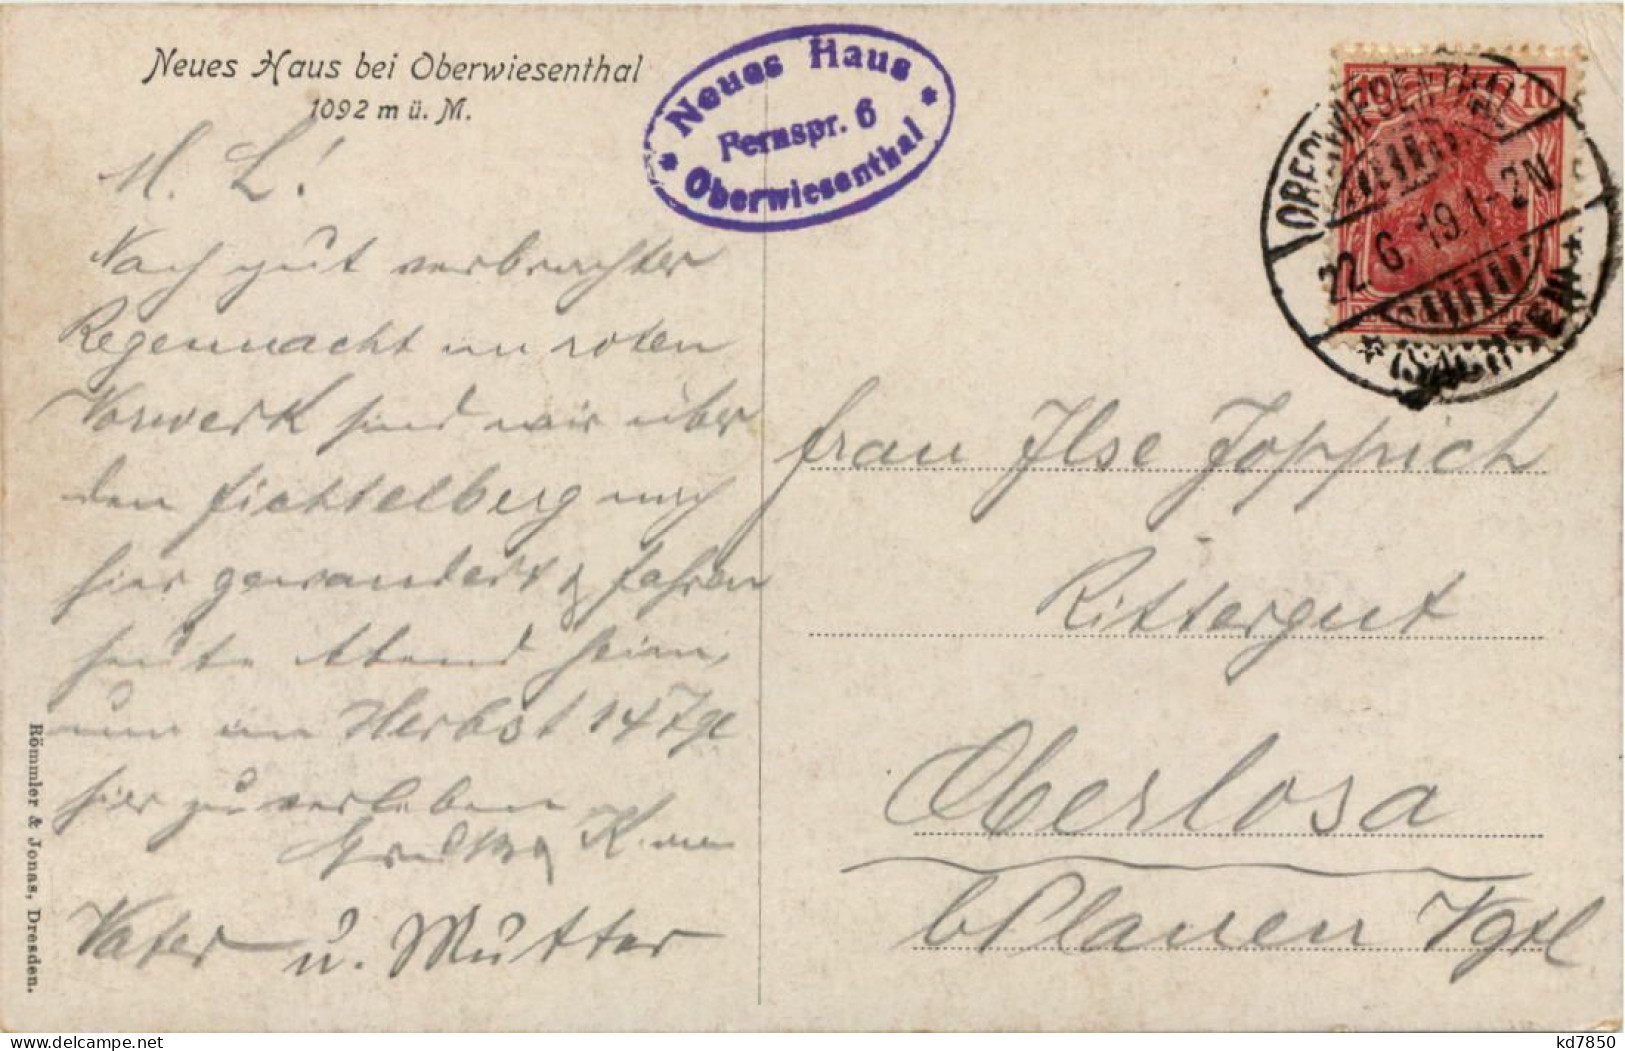 Neues Haus bei Oberwiesenthal
1092 m ü. M.
* Neues Haus *
Fernspr. 6
Oberwiesenthal
10
OBERWIESENTHAL
22. 6. 19. 1-2N
* (SACHSEN) *
M. L!
Nach gut verbrachter
Regennacht im roten
Vorwerk sind wir über
den Fichtelberg nach
hier gewandert & fahren
heute Abend heim,
um im Herbst 14 Tge
hier zu verleben
Vater u. Mutter
Frau Ilse Joppich
Rittergut
Oberlosa
b Plauen Vgtl
Römmler & Jonas, Dresden.
kd7850